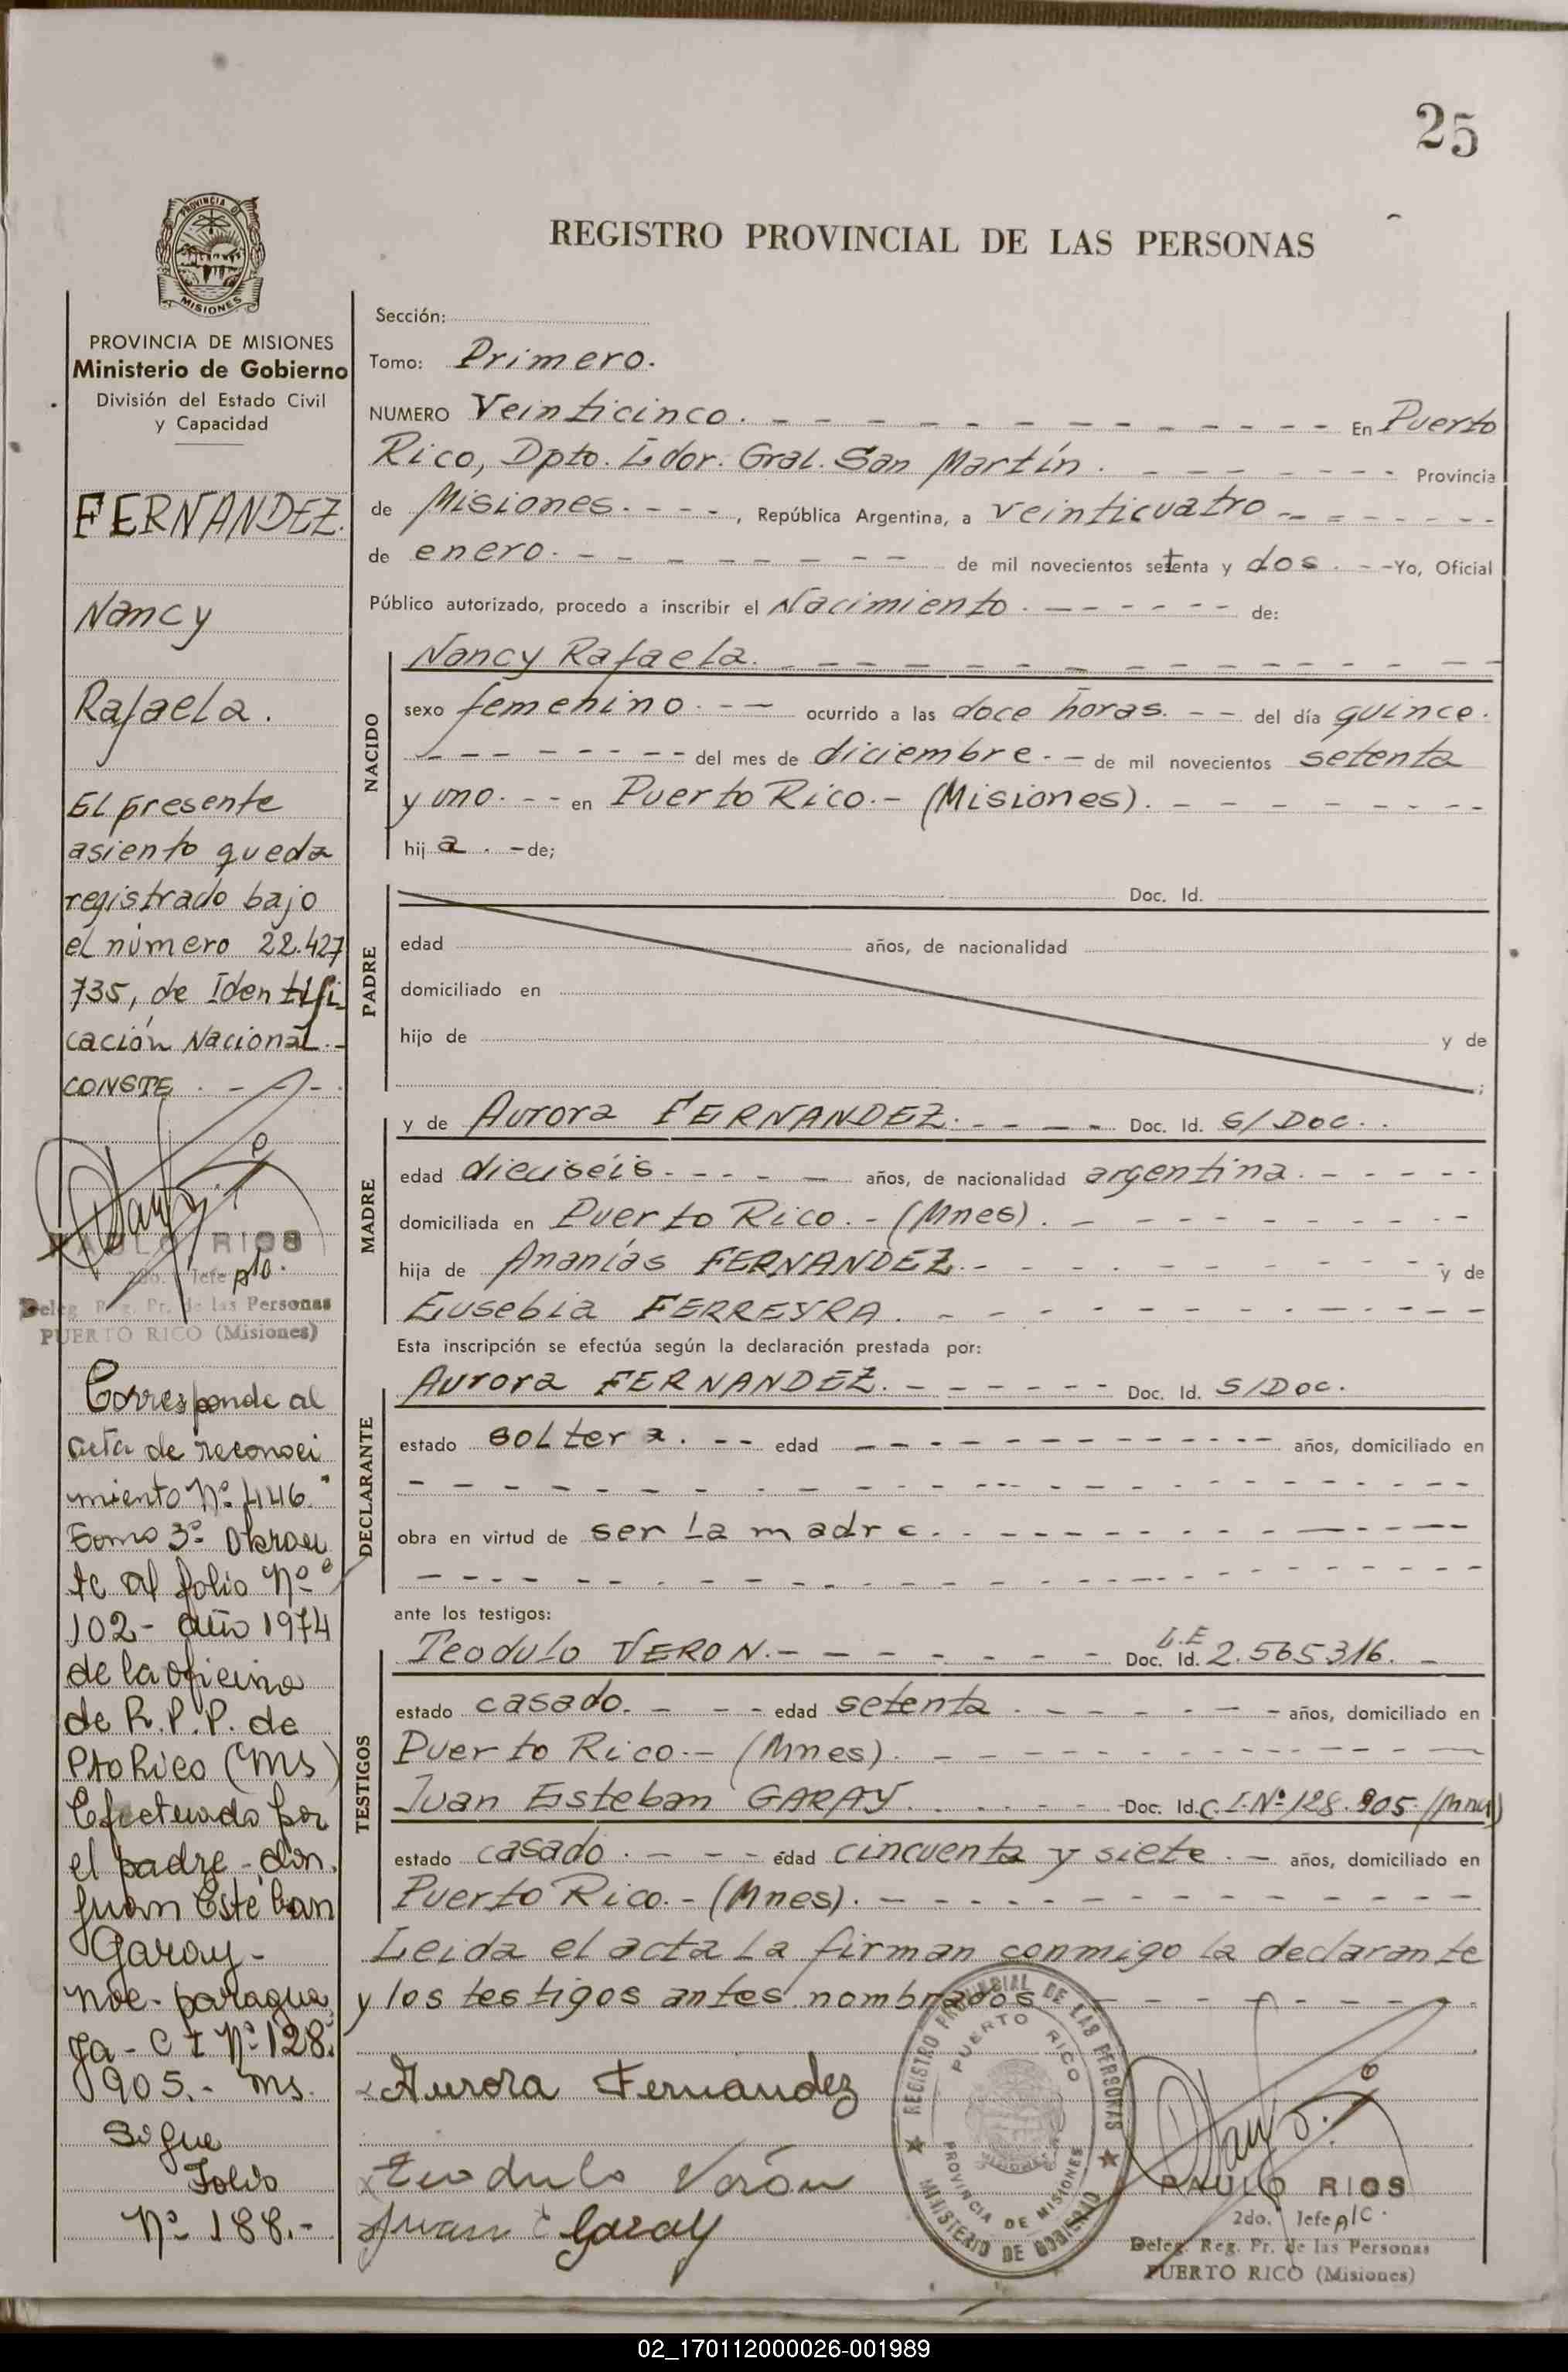 25
PROVINCIA DE
MISIONES
REGISTRO PROVINCIAL DE LAS PERSONAS
PROVINCIA DE MISIONES
Ministerio de Gobierno
División del Estado Civil
y Capacidad
FERNANDEZ.
Nancy
Rafaela.
El presente
asiento queda
registrado bajo
el número 22.427
735, de Identifi
cación Nacional.-
CONSTE. - - -.
PAULO RIOS
2do. Jefe A/C.
Deleg. Reg. Pr. de las Personas
PUERTO RICO (Misiones)
Corresponde al
acta de reconoci
miento Nº 446.
Tomo 3º Obran
te al folio Nº
102- año 1974
de la oficina
de R.P.P. de
Pto Rico (Ms)
Efectuado por
el padre - don.
Juan Esteban
Garay-
Nac- paragua
ya- C I Nº 128.
905.- Ms.
Sigue
Folio
Nº 188.-
Sección:
Tomo: Primero.
NUMERO Veinticinco. - - - En Puerto
Rico, Dpto. Ldor. Gral. San Martín. - - - Provincia
de Misiones. - - -, República Argentina, a veinticuatro - - -
de enero. - - - de mil novecientos setenta y dos. - -Yo, Oficial
Público autorizado, procedo a inscribir el Nacimiento. - - - de:
NACIDO
Nancy Rafaela. - - -
sexo femenino. - - ocurrido a las doce horas. - - del día quince.
- - - del mes de diciembre. - - de mil novecientos setenta
y uno. - - en Puerto Rico.- (Misiones). - - -
hij a. - de;
PADRE
Doc. Id.
edad años, de nacionalidad
domiciliado en
hijo de y de
;
MADRE
y de Aurora FERNANDEZ. - - - Doc. Id. S/Doc..
edad dieciséis. - - - años, de nacionalidad argentina. - - -
domiciliada en Puerto Rico.- (Mnes). - - -
hija de Ananías FERNANDEZ.- - - y de
Eusebia FERREYRA. - - -
Esta inscripción se efectúa según la declaración prestada por:
DECLARANTE
Aurora FERNANDEZ. - - - Doc. Id. S/Doc.
estado soltera. - - edad - - - años, domiciliado en
- - -
obra en virtud de ser la madre. - - -
- - -
ante los testigos:
TESTIGOS
Teodulo VERON.- - - Doc. Id. L.E 2.565316. -
estado casado. - - - edad setenta. - - - años, domiciliado en
Puerto Rico.- (Mnes). - - -
Juan Esteban GARAY. - - - Doc. Id. C.I.Nº 128.905-(Mnes)
estado casado. - - - edad cincuenta y siete. - años, domiciliado en
Puerto Rico.- (Mnes). - - -
Leida el acta la firman conmigo la declarante
y los testigos antes nombrados - - -
Aurora Fernandez
Teodulo Verón
Juan E Garay
REGISTRO PROVINCIAL DE LAS PERSONAS
PUERTO RICO
PROVINCIA DE MISIONES
MINISTERIO DE GOBIERNO
PAULO RIOS
2do. Jefe A/C.
Deleg. Reg. Pr. de las Personas
PUERTO RICO (Misiones)
02_170112000026-001989